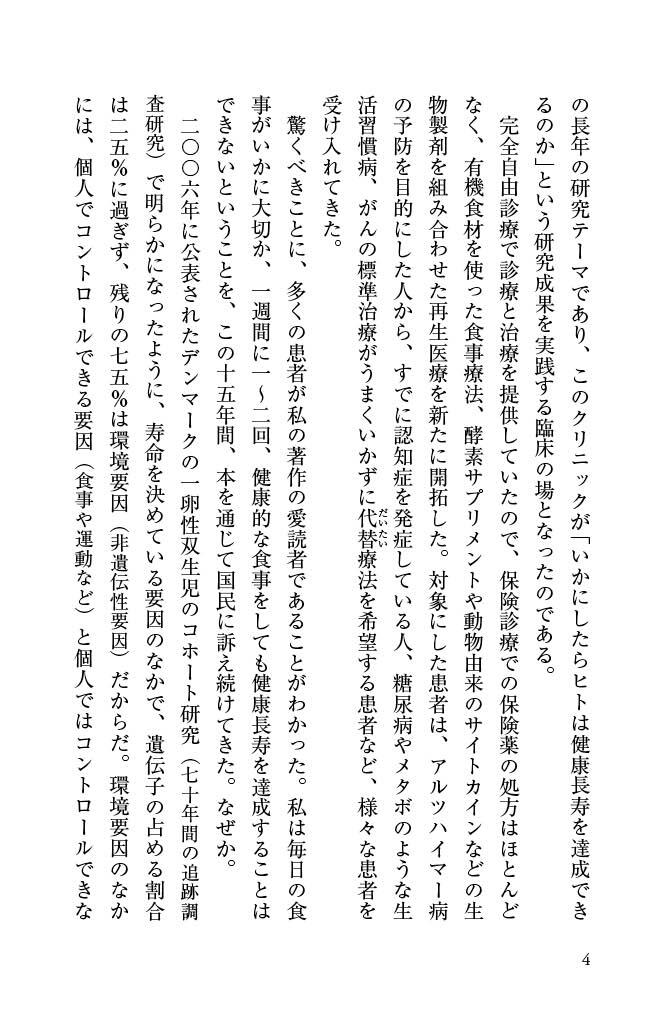 の長年の研究テーマであり、このクリニックが「いかにしたらヒトは健康長寿を達成でき
るのか」という研究成果を実践する臨床の場となったのである。
完全自由診療で診療と治療を提供していたので、保険診療での保険薬の処方はほとんど
なく、有機食材を使った食事療法、酵素サプリメントや動物由来のサイトカインなどの生
物製剤を組み合わせた再生医療を新たに開拓した。対象にした患者は、アルツハイマー病
の予防を目的にした人から、すでに認知症を発症している人、糖尿病やメタボのような生
活習慣病、がんの標準治療がうまくいかずに代替療法を希望する患者など、様々な患者を
だいたい
受け入れてきた。
驚くべきことに、多くの患者が私の著作の愛読者であることがわかった。私は毎日の食
事がいかに大切か、一週間に一～二回、健康的な食事をしても健康長寿を達成することは
できないということを、この十五年間、本を通じて国民に訴え続けてきた。なぜか。
二〇〇六年に公表されたデンマークの一卵性双生児のコホート研究（七十年間の追跡調
査研究）で明らかになったように、寿命を決めている要因のなかで、遺伝子の占める割合
は二五％に過ぎず、残りの七五％は環境要因（非遺伝性要因）だからだ。環境要因のなか
には、個人でコントロールできる要因（食事や運動など）と個人ではコントロールできな
4